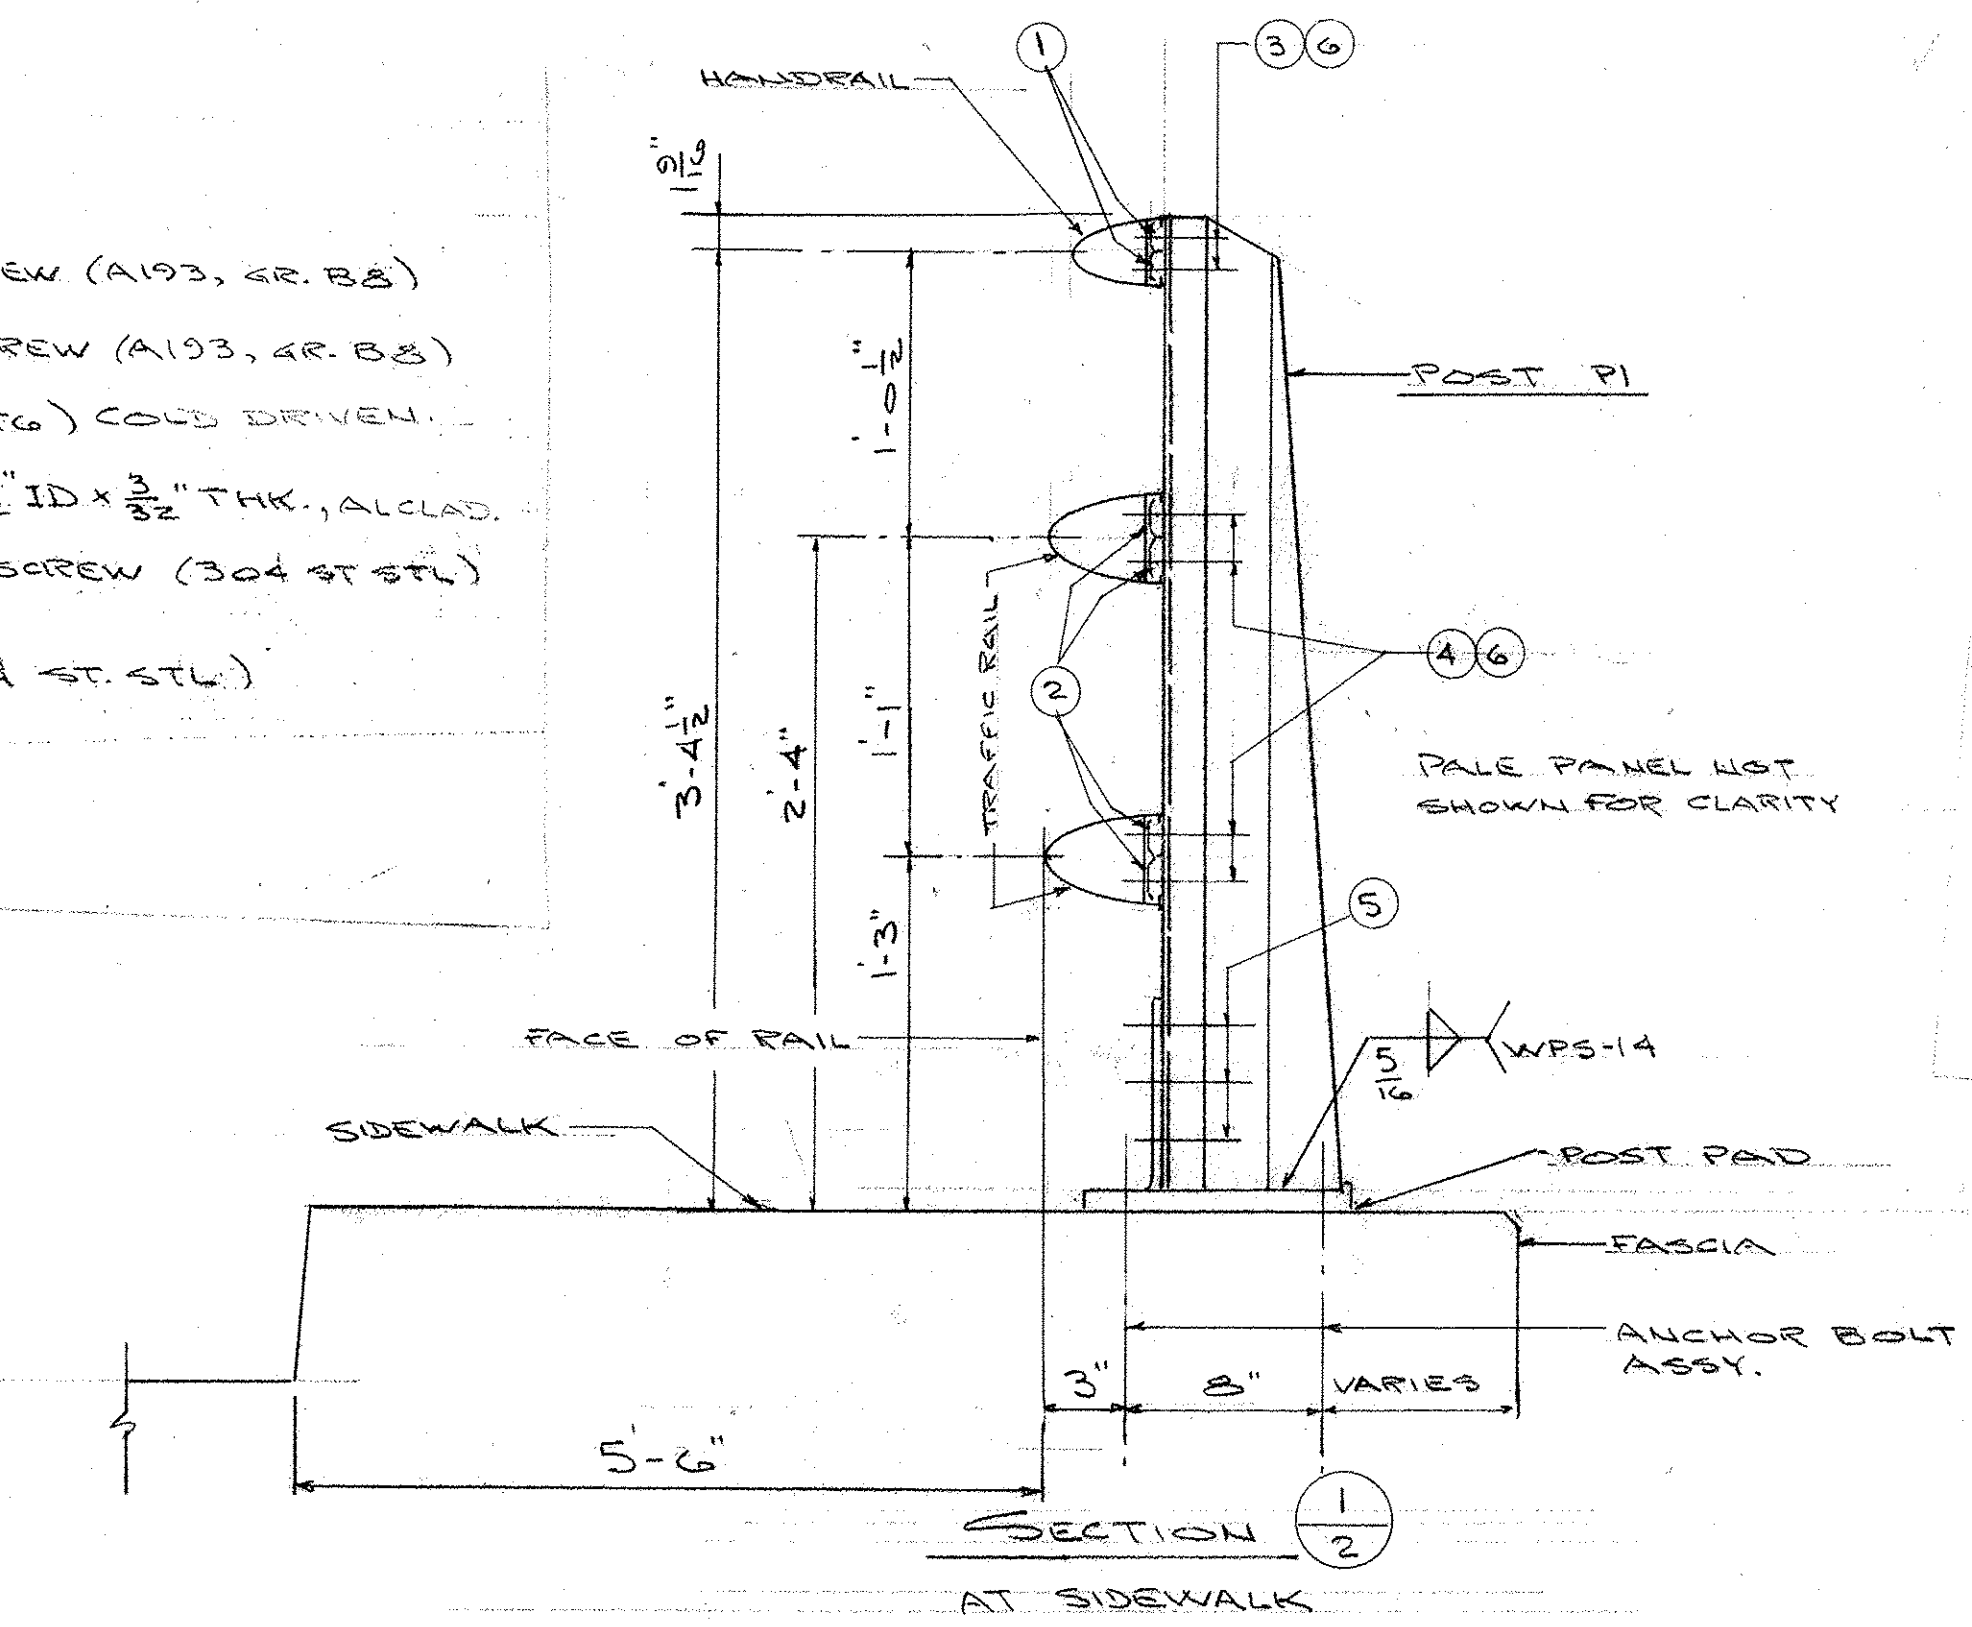 EW (A193, GR. B8)
REW (A193, GR. B8)
T6) COLD DRIVEN.
" ID x 3/32" THK., ALCLAD.
SCREW (304 ST STL)
ST. STL.)
1
3 6
HANDRAIL
1 9/16"
1'-0 1/2"
POST P1
TRAFFIC RAIL
2
4 6
3'-4 1/2"
2'-4"
1'-1"
PALE PANEL NOT
SHOWN FOR CLARITY
1'-3"
5
FACE OF RAIL
5/16
WPS-14
SIDEWALK
POST PAD
FASCIA
ANCHOR BOLT
ASSY.
3"
8"
VARIES
5'-6"
SECTION 1/2
AT SIDEWALK